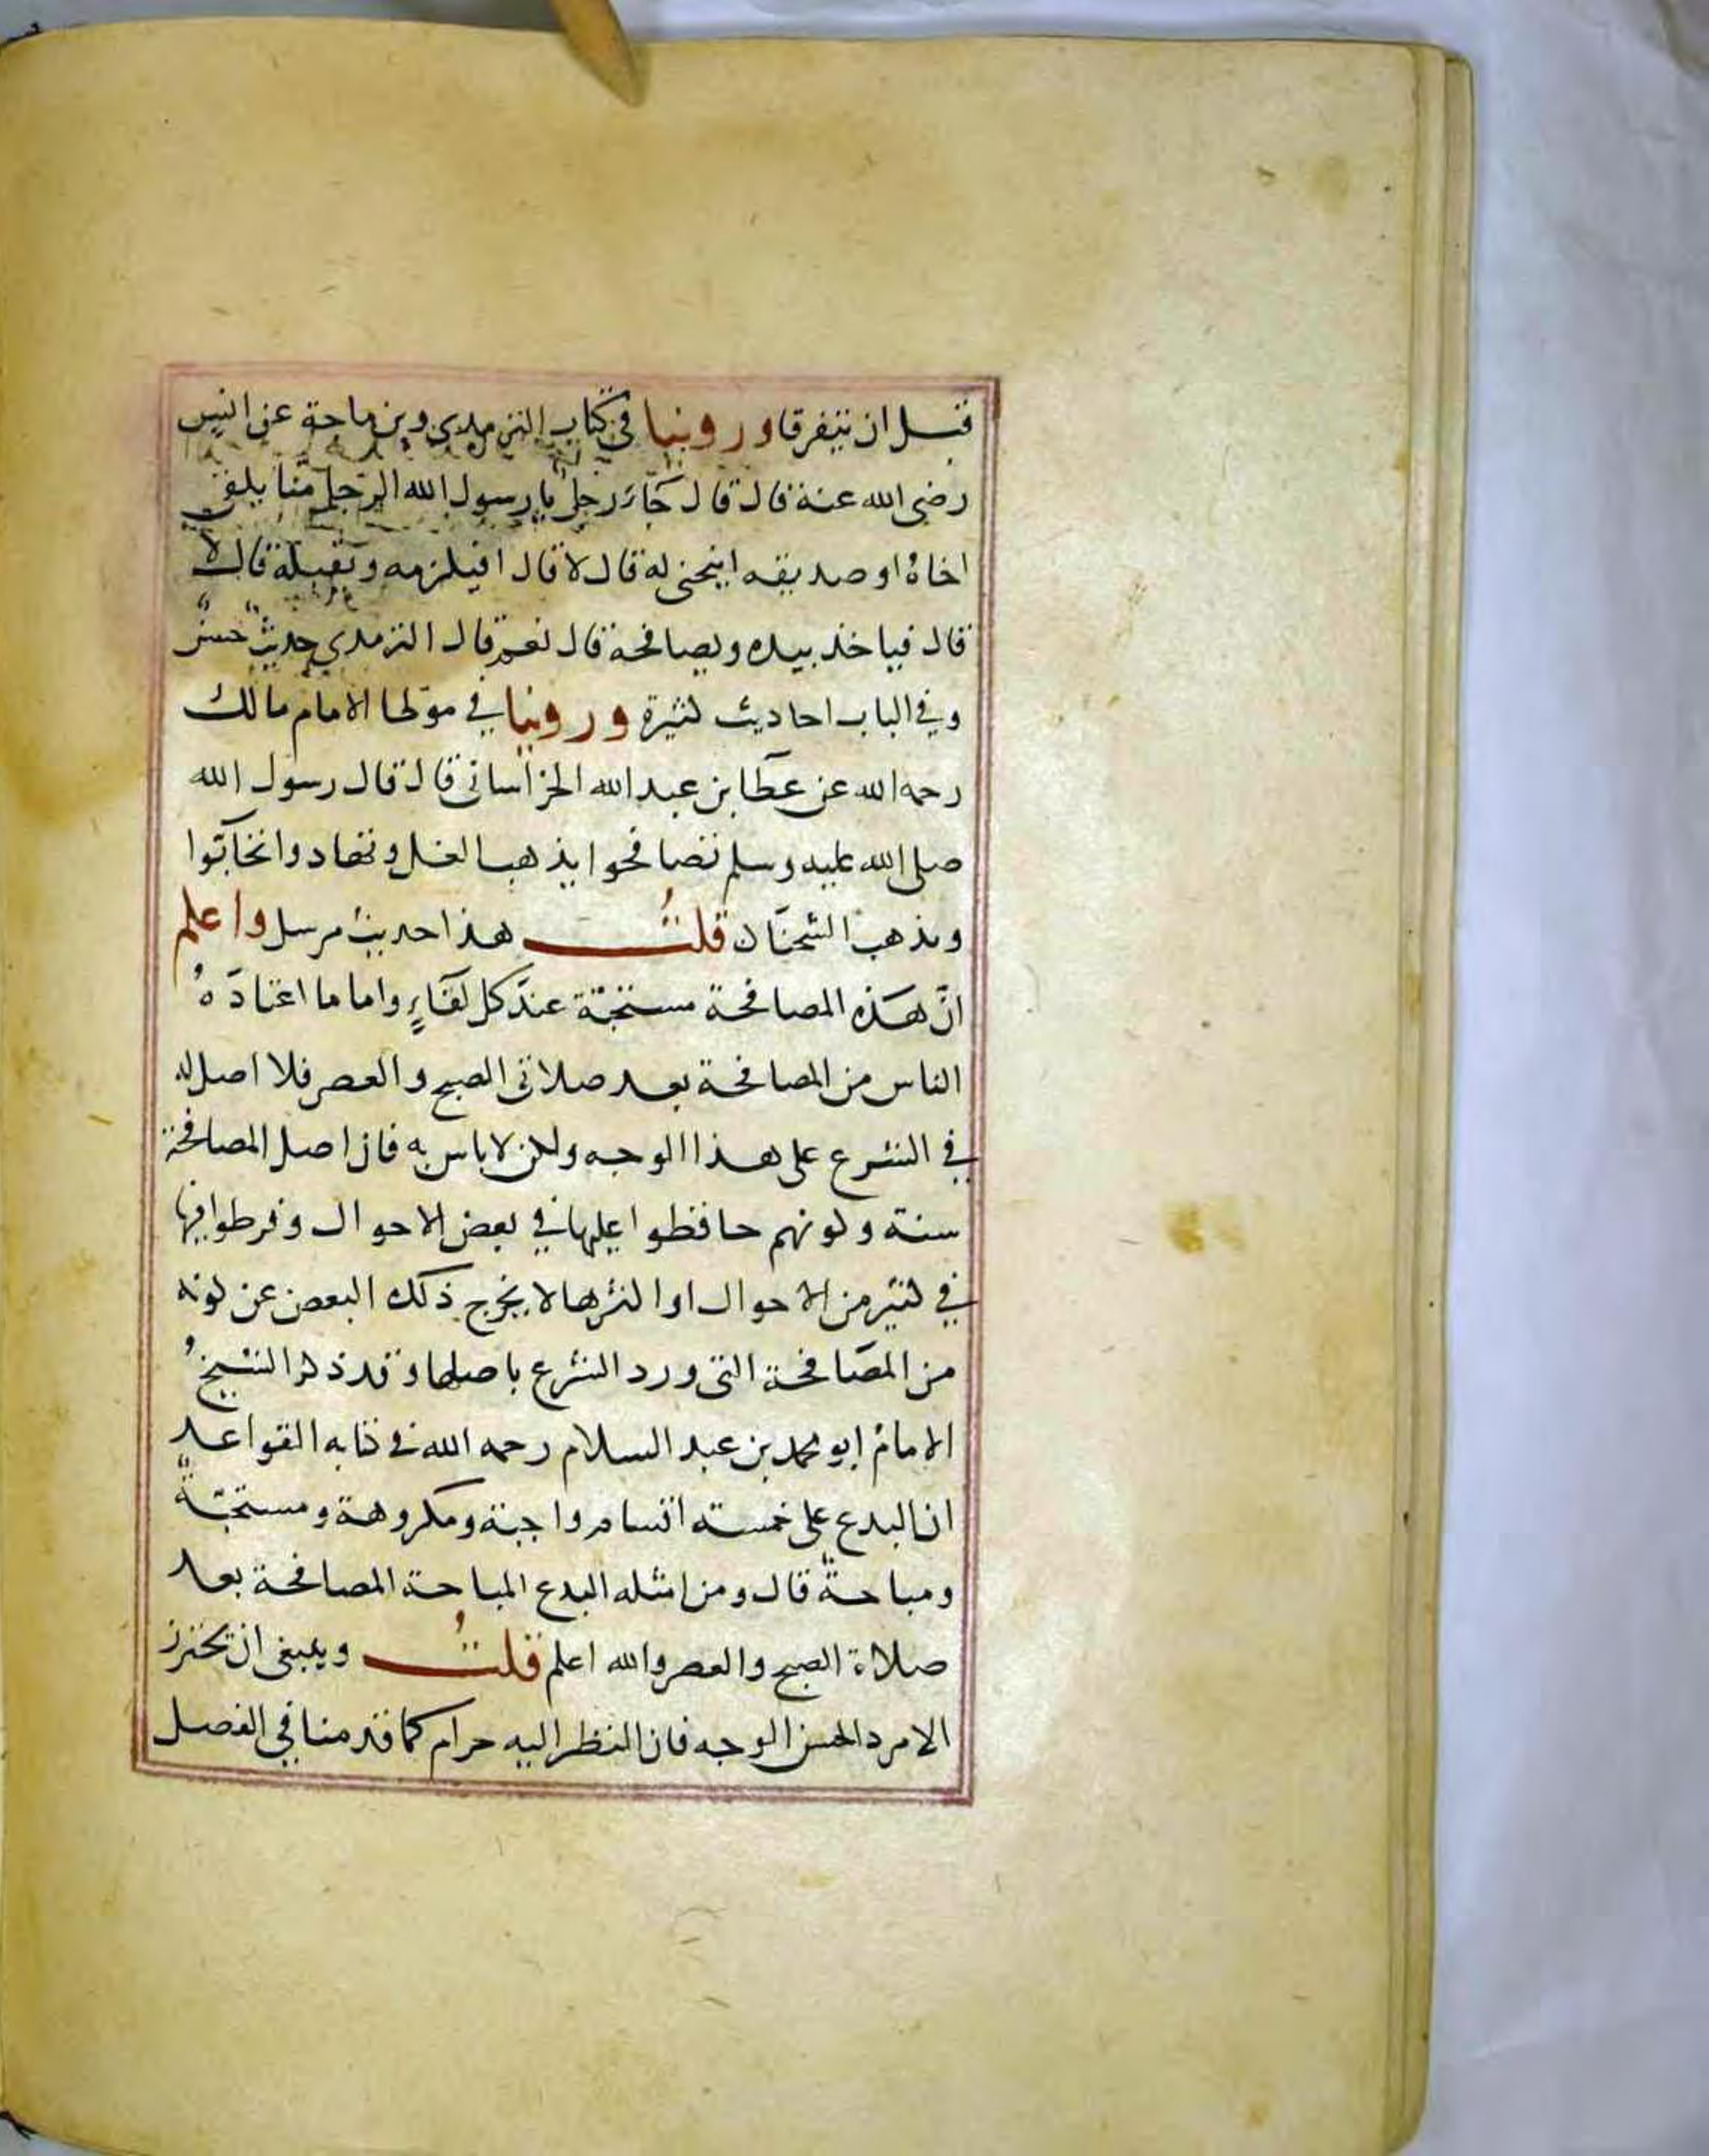 قبل ان يتفرقا وروينا في كتاب الترمدي وبن ماجة عن انس
رضي الله عنه قال قال جاء رجل يا رسول الله الرجل منا يلقى
اخاهُ او صديقه اينحني له قال لا قال افيلزمه ويقبله قال لا
قال فياخذ بيده ويصافحه قال نعم قال الترمدي حديثٌ حسنٌ
وفي الباب احاديث كثيرة وروينا في موطا الامام مالك
رحمه الله عن عطا بن عبد الله الخراساني قال قال رسول الله
صلى الله عليه وسلم تصافحوا يذهب الغل وتهادوا تحابّوا
ويذهب الشحنآن قلتُ هذا حديث مرسل واعلم
انّ هَذه المصافحة مستحبّة عندَ كل لقآءٍ واما ما اعتادَهُ
الناس من المصافحة بعد صلاتي الصبح والعصر فلا اصل له
في الشرع على هذا الوجه ولكن لا باس به فان اصل المصافحة
سنة وكونهم حافظوا عليها في بعض الاحوال وفرطوا فيها
في كثير من الاحوال او اكثرها لا يخرج ذلك البعض عن كونه
من المصَافحة التي ورد الشرع باصلها وقد ذكر الشيخُ
الامامُ ابو محمد بن عبد السلام رحمه الله في كتابه القواعد
ان البدع على خمسة اقسام واجبة ومكروهة ومستحبّةٌ
ومباحةٌ قال ومن امثله البدع المباحة المصافحة بعد
صلاة الصبح والعصر والله اعلم قلتُ وينبغي ان تحترز
الامرد الحسن الوجه فان النظر اليه حرام كما قدمنا في الفصل